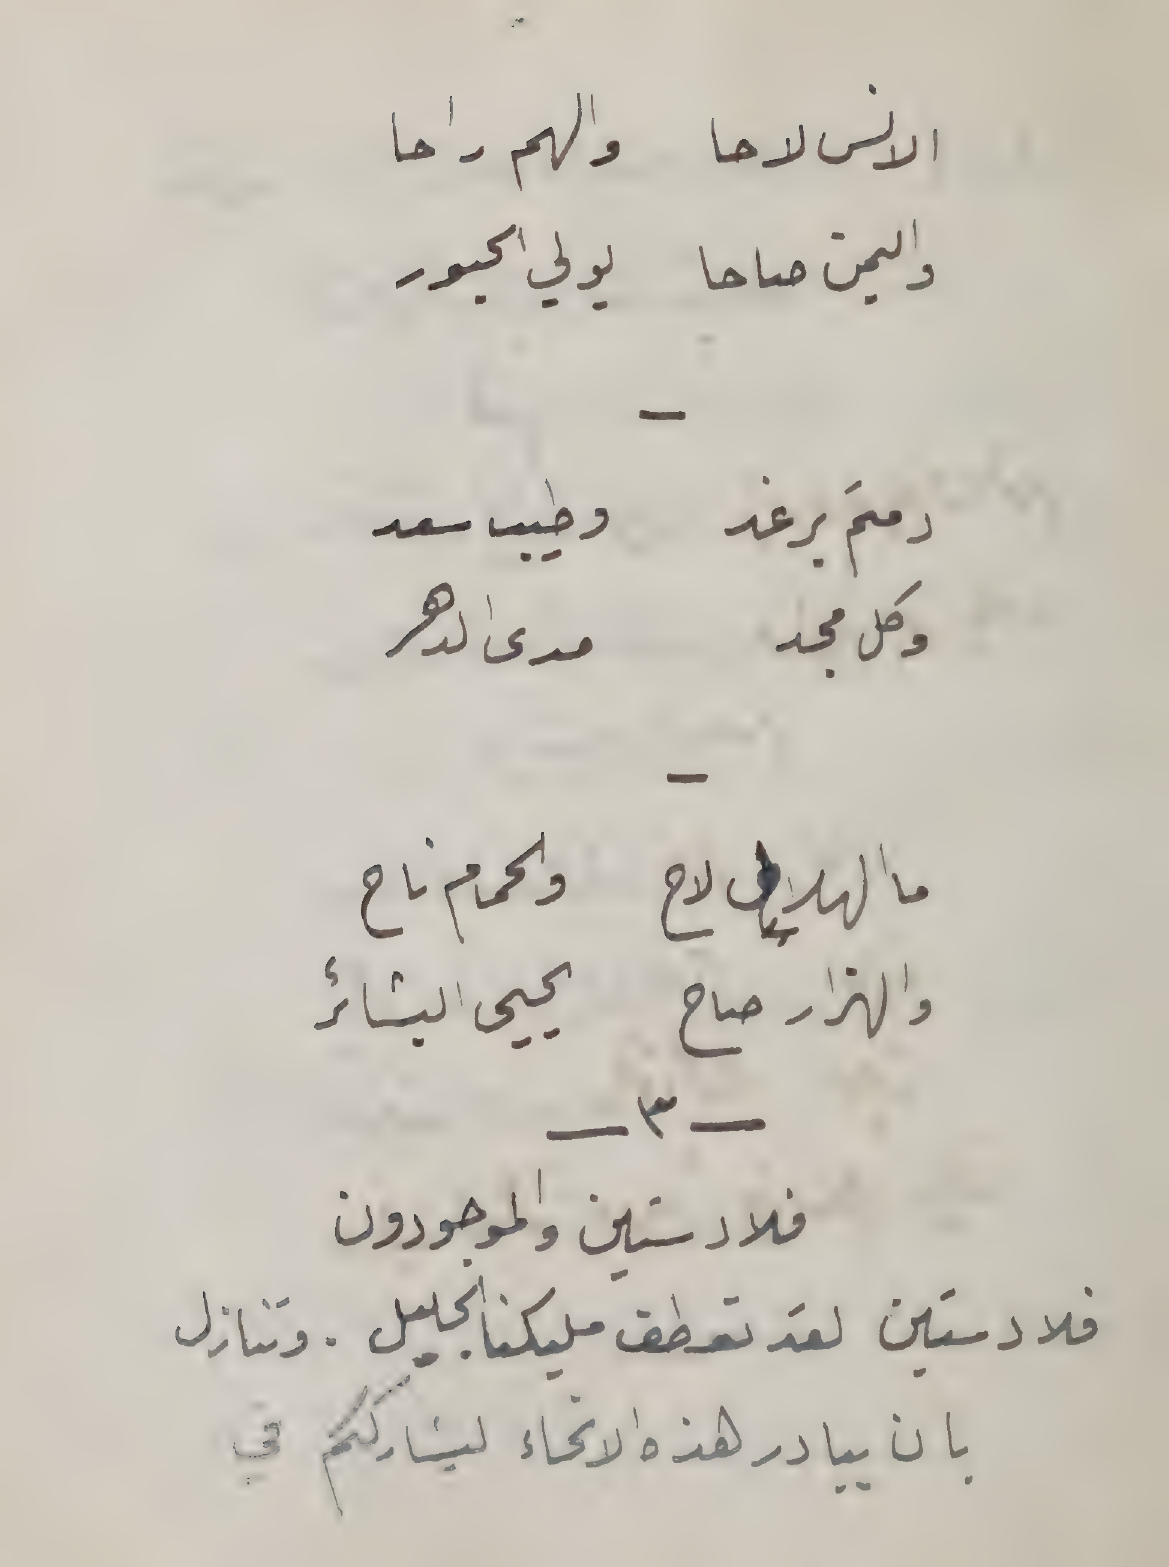 الانس لاحا والهم راحا
واليمن صاحا يولي الحبور
—
دمتم برغد وطيب سعد
وكل مجد مدى الدهر
—
ما الهلال لاح والحمام ناح
والهزار صاح يحيي البشائر
— ٣ —
فلادستين والموجودون
فلادستين لقد تعطف مليكنا الجليل . وتنازل
بان يبادر هذه الانحاء ليشارككم في